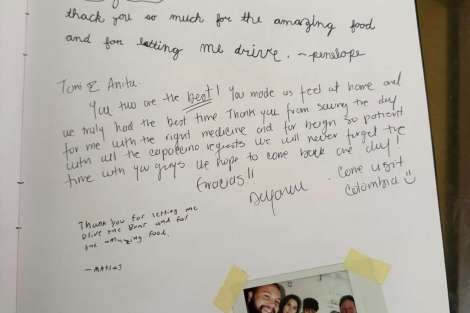 thack you so much for the amazing food
and for letting me drive. ~penelope
Toni & Anita:
You two are the best! You made us feel at home and
we truly had the best time Thank you from saving the day
for me with the right medicine and for beign so patient
with all the capuccino requests we will never forget the
time with you guys we hope to come back one day!
Gracias!!
Come visit
Colombia
Thank you for letting me
Drive the Boat and for
the amazing food.
-MATIAS